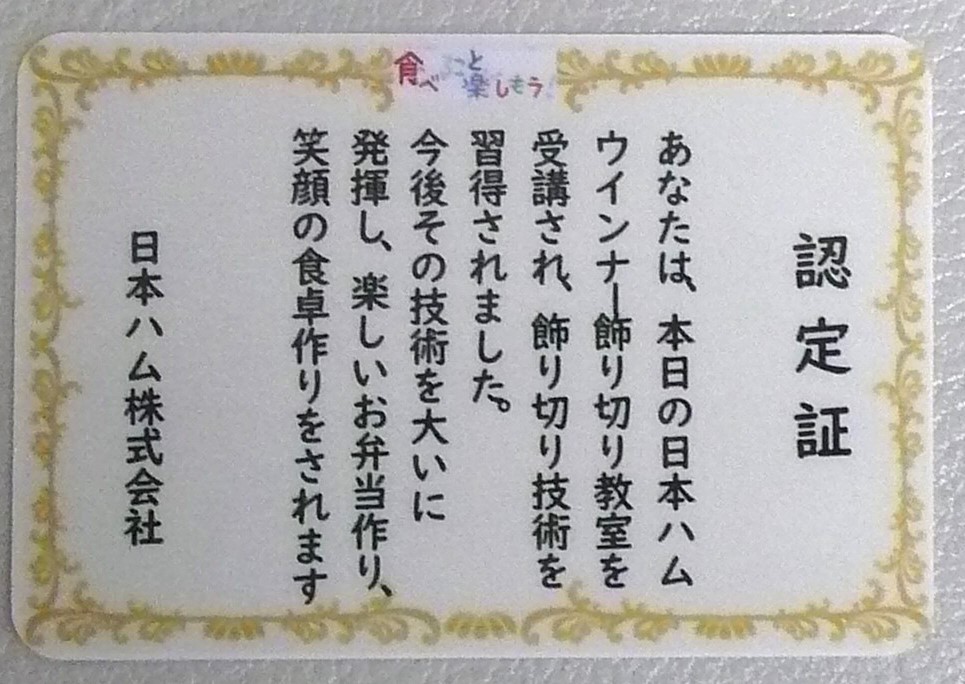 食べること
楽しもう
認定証
あなたは、本日の日本ハム
ウインナー飾り切り教室を
受講され、飾り切り技術を
習得されました。
今後その技術を大いに
発揮し、楽しいお弁当作り、
笑顔の食卓作りをされます
日本ハム株式会社